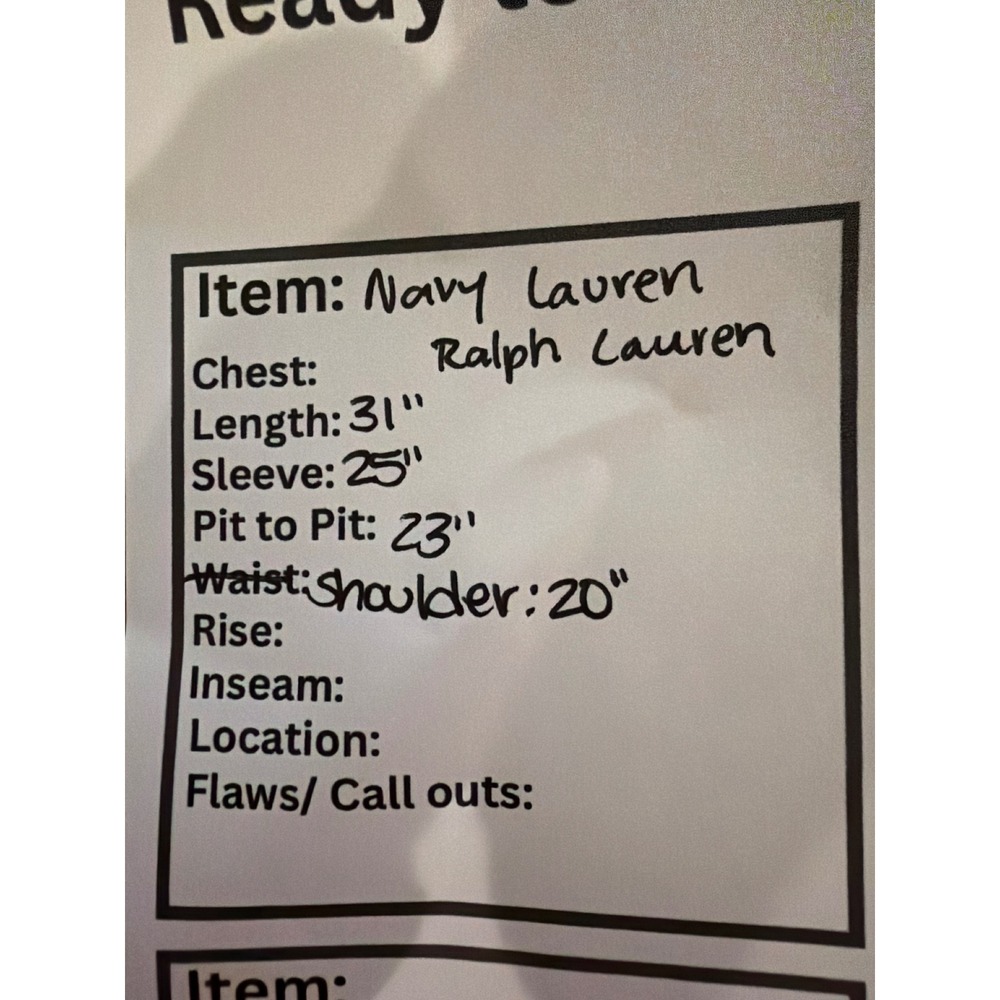 Ready to
Item: Navy Lauren
Ralph Lauren
Chest:
Length: 31"
Sleeve: 25"
Pit to Pit: 23"
Waist: Shoulder: 20"
Rise:
Inseam:
Location:
Flaws/ Call outs:
Item: